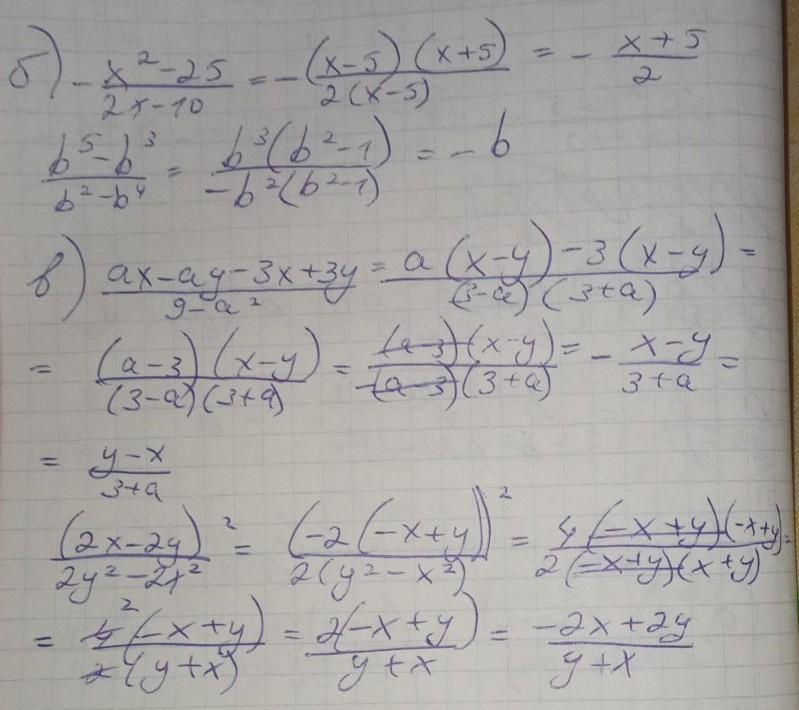 б) - (x² - 25)/(2x - 10) = - ((x-5)(x+5))/(2(x-5)) = - (x+5)/2
(b⁵ - b³)/(b² - b⁴) = (b³(b² - 1))/(-b²(b² - 1)) = - b
в) (ax - ay - 3x + 3y)/(9 - a²) = (a(x-y) - 3(x-y))/((3-a)(3+a)) =
= ((a-3)(x-y))/((3-a)(3+a)) = ((a-3)(x-y))/(-(a-3)(3+a)) = - (x-y)/(3+a) =
= (y-x)/(3+a)
(2x-2y)²/(2y² - 2x²) = (-2(-x+y))²/(2(y² - x²)) = (4(-x+y)(-x+y))/(2(-x+y)(x+y)) =
= (4 2(-x+y))/(2 1(y+x)) = (2(-x+y))/(y+x) = (-2x+2y)/(y+x)